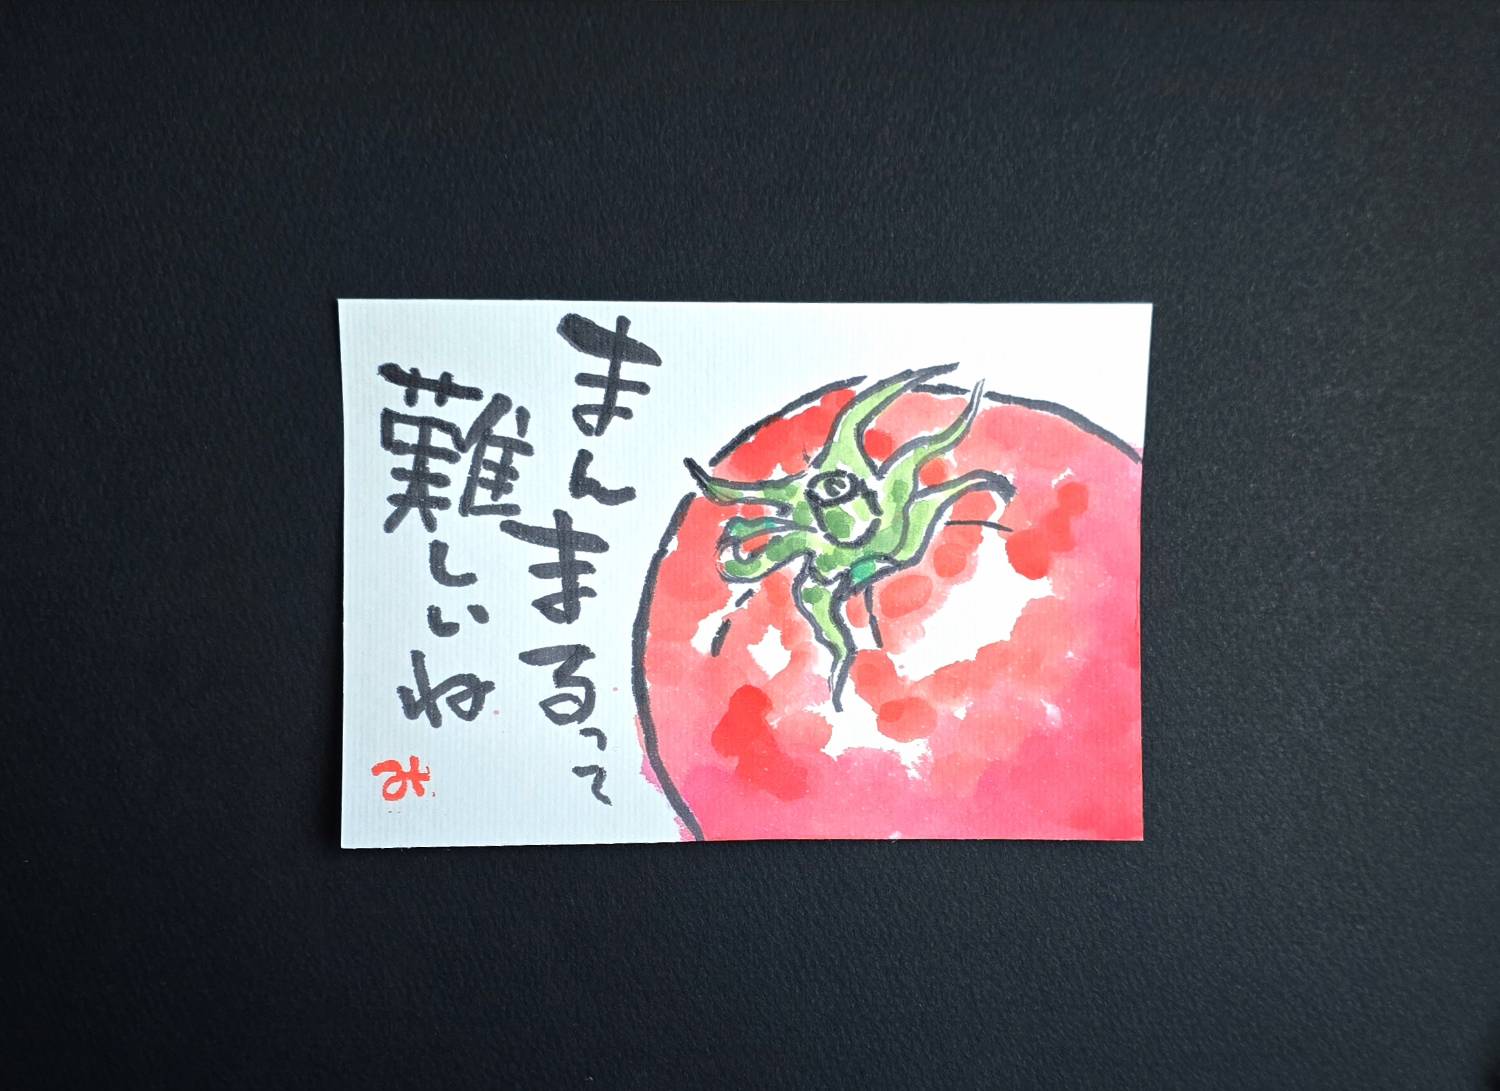 まんまるって
難しいね
み